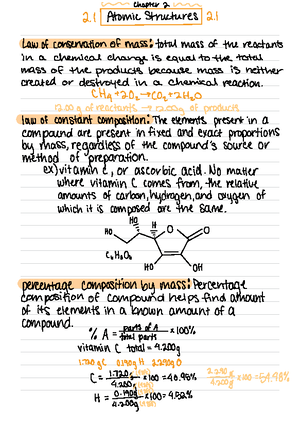 chapter 2
2.1 Atomic Structures 2.1
law of conservation of mass: total mass of the reactants
in a chemical change is equal to the total
mass of the products because mass is neither
created or destroyed in a chemical reaction.
CH₄ + 2O₂ → CO₂ + 2H₂O
12.00 g of reactants → 12.00g of products
law of constant composition: The elements present in a
compound are present in fixed and exact proportions
by mass, regardless of the compound's source or
method of preparation.
ex) vitamin c, or ascorbic acid. No matter
where vitamin C comes from, the relative
amounts of carbon, hydrogen, and oxygen of
which it is composed are the same.
HO
HO
H
O
O
C₆H₈O₆
HO
OH
percentage composition by mass: Percentage
composition of compound helps find amount
of its elements in a known amount of a
compound.
% A = parts of A / total parts × 100%
vitamin C total = 4.200g
1.720g C 0.190g H 2.290g O
C = 1.720 / 4.200 × 100 = 40.95%
2.290 / 4.200g × 100 = 54.98%
H = 0.190g / 4.200g × 100 = 4.52%